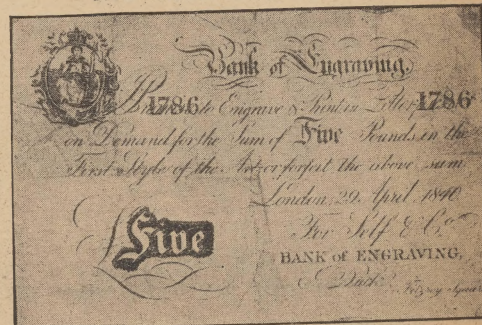 Bank of Engraving.
I Promise to Engrave & Print in Letter
1786 1786
on Demand for the Sum of Five Pounds in the
First Style of the Art or forfeit the above sum
London, 29 April 1840
For Self & Co.
Five
BANK of ENGRAVING,
Fitzroy Square